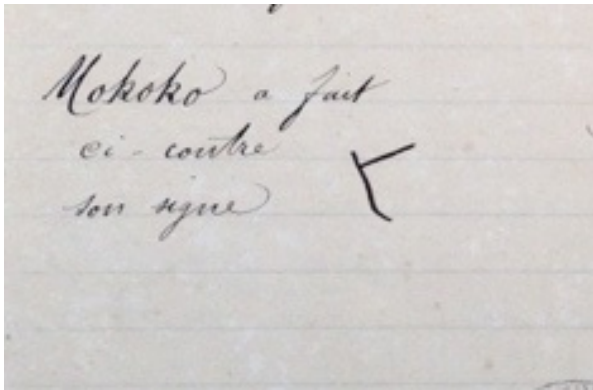 Mokoko a fait
ci-contre
son signe